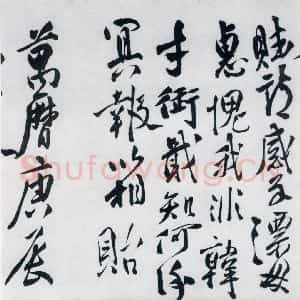 賦詩感子漂母
惠愧我非韓
才銜戢知何謝
冥報以相貽
萬曆庚辰
Shufawang.CN